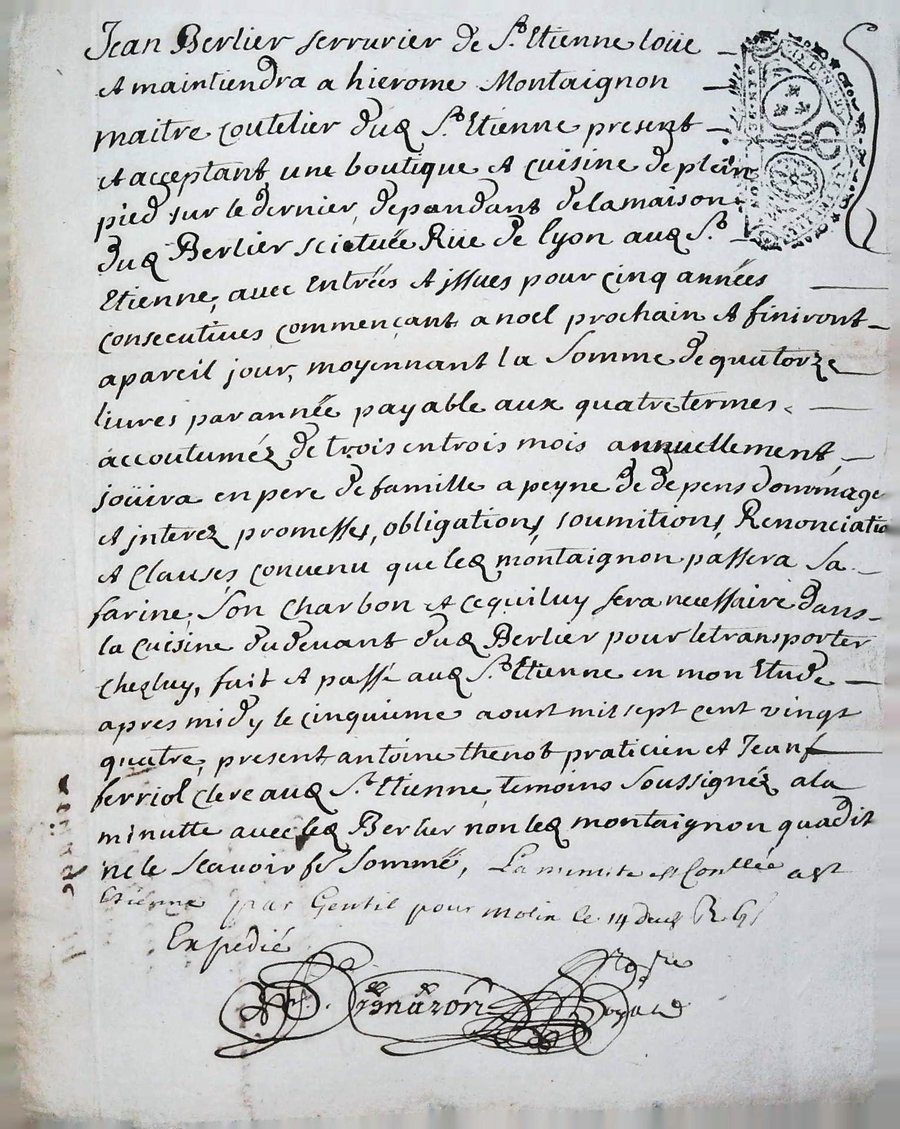 Jean Berlier serrurier de St. Etienne loüe
et maintiendra a hierome Montaignon
maitre coutelier dud. St. Etienne present
et acceptant une boutique et cuisine de plein
pied sur le dernier, dependant de la maison
dud. Berlier scictuée Rüe de lyon aud. St.
Etienne, avec Entrées et jssues pour cinq années
consecutives commençant a noel prochain et finiront
a pareil jour, moyennant la somme de quatorze
livres par année payable aux quatre termes
accoutuméz de trois en trois mois annuellement,
joüira en pere de famille a peyne de depens dommage
et jnterez promesses, obligations, soumitions, Renonciatio
et Clauses, convenu que led. montaignon passera sa
farine, son charbon et ce qui luy sera necessaire dans
la cuisine du devant dud. Berlier pour le transporter
chez luy, fait et passé aud. St. Etienne en mon Etude
apres midy le cinquieme aoust mil sept cent vingt
quatre, present antoine thenot praticien et Jean
ferriol clerc aud. St. Etienne, temoins soussignéz a la
minutte avec led. Berlier non led. montaignon qua dit
ne le scavoir fe sommé, La minute est Conllée a St
Etienne par Gentil pour molin le 14 dud.
Expedié